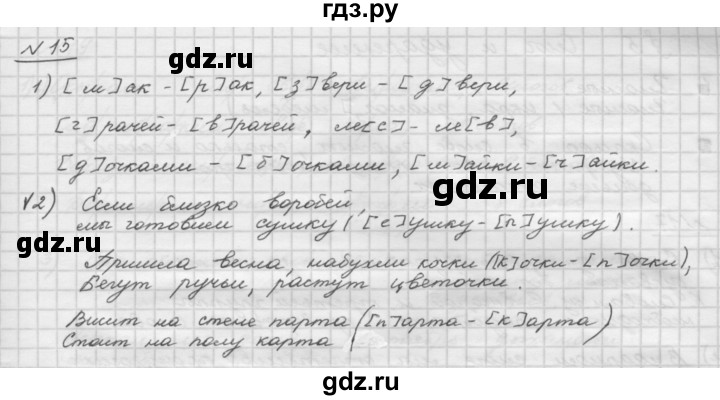 гдз.ру
N 15
1) [м]ак - [р]ак, [з]вери - [д]вери,
[г]рачей - [в]рачей, ле[с] - ле[в],
[д]очками - [б]очками, [м]айки - [ч]айки.
gdz.ru
√2) Если близко воробей,
мы готовим сушку ([с]ушку - [п]ушку).
Пришла весна, набухли кочки ([к]очки - [п]очки),
Бегут ручьи, растут цветочки.
Висит на стене парта ([п]арта - [к]арта)
Стоит на полу карта
gdz.ru
gdz.ru